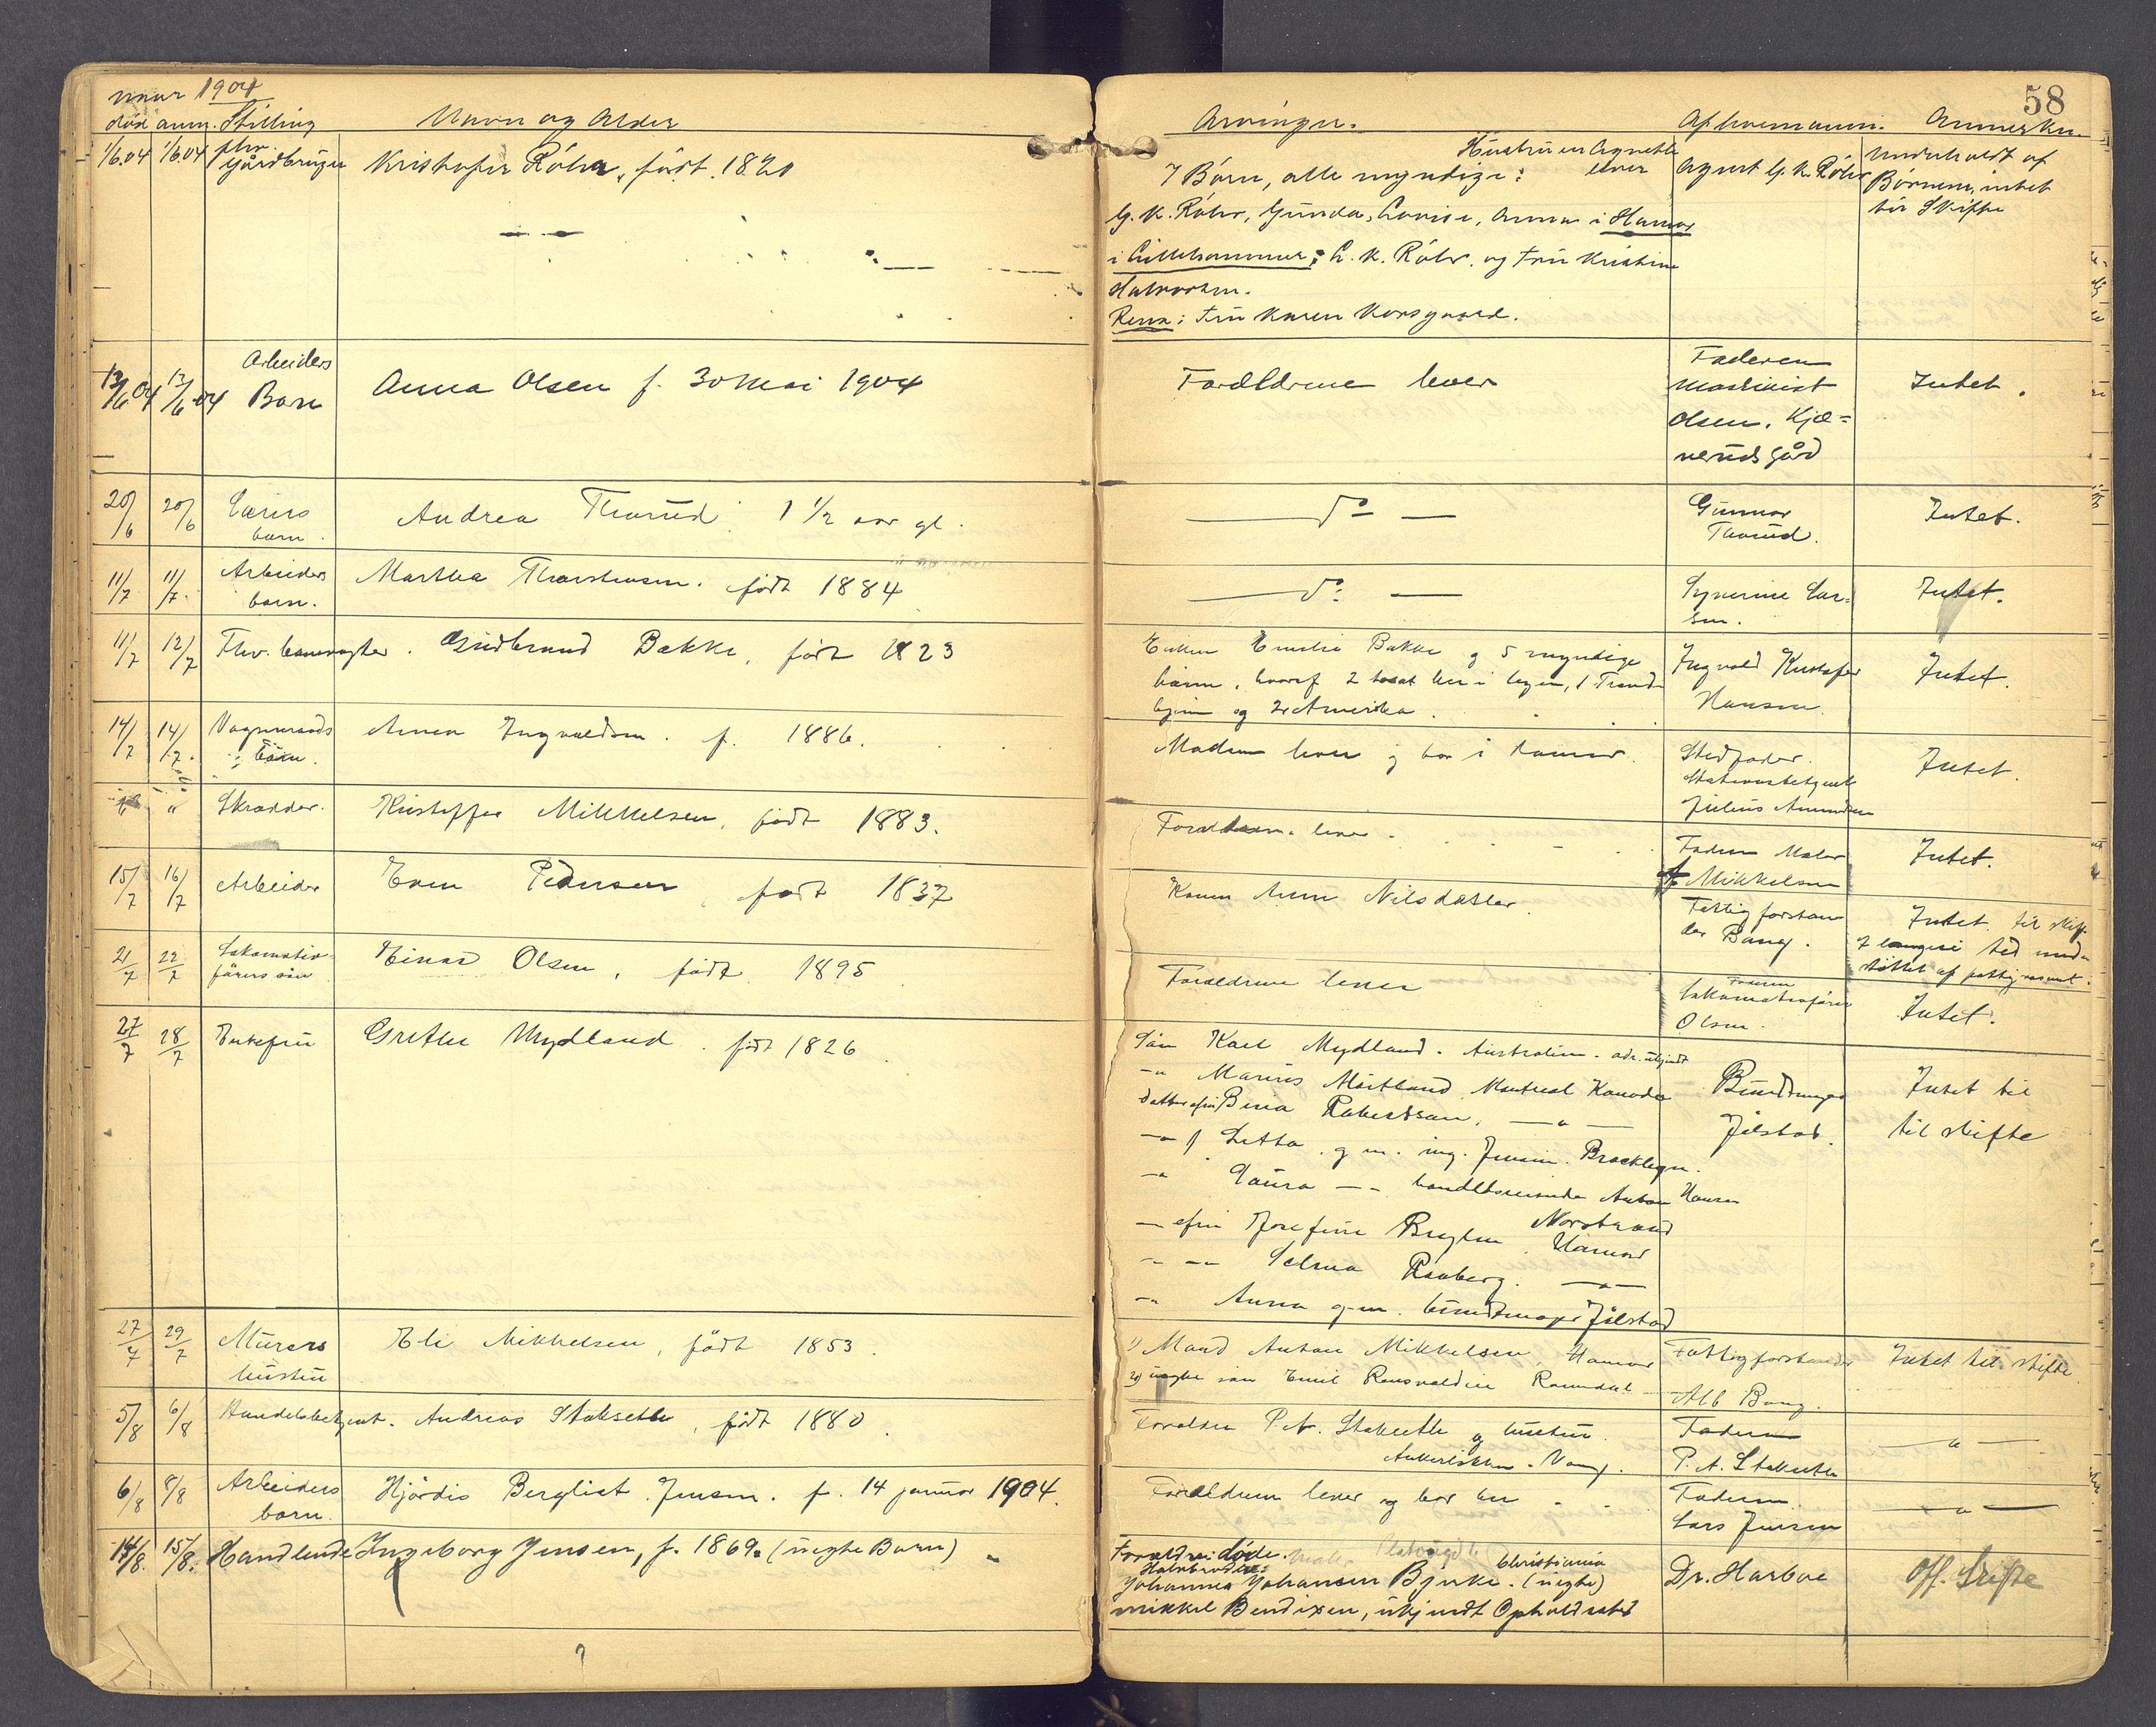 1904
58
død anm. Stilling Navn og Alder Arvinger. Anmerkn.
1/6.04 1/6.04 fhv. Gårdbruger Kristofer Röhr, født 1820
Hustruen Agnethe lever
7 Börn, alle myndige:
G. K. Röhr, Gunda, Lovise, Anna i Hamar
i Lillehammer: L. K. Röhr. og Fru Kristine
Halvorsen.
Rena: Fru Karen Korsgaard.
Agent G. K. Röhr
Underholdt af
Börnene, intet
til Skifte
13/6 04 13/6 04 Arbeiders
Barn Anna Olsen f. 30 Mai 1904
Forældrene lever
Faderen
Maskinist
Olsen, Kjæ-
nerudsgård
Intet.
20/6 20/6
barn. Andrea Thorud. 1 1/2 aar gl.
do
Gunnar
Thorud.
Intet.
11/7 11/7. Arbeiders
barn. Martha Thorstensen. født 1884
do
Syverine Lar-
sen.
Intet.
11/7 12/7 Fhv. banevogter. Gudbrand Bakke, født 1823
Enken Emilie Bakke og 5 myndige
børn, hvoraf 2 bosat her i byen, 1 Trond-
hjem og 2 i Amerika.
Ingvald Kristofer
Hansen
Intet.
14/7 14/7. Vognmands
barn. Anna Ingvaldsen. f. 1886.
Moderen lever og bor i Hamar.
Stedfader.
Stationsbetjent
Julius Amundsen
Intet.
" Skrædder. Kristoffer Mikkelsen, født 1883.
Forældrene lever.
Faderen Maler
Mikkelsen
Intet.
15/7 16/7 Arbeider Even Pedersen, født 1837
Konen Anne Nilsdatter.
Fattigforstan
der Bang.
Intet til skifte
længere tid under
støttet af fattigvæsenet.
21/7 22/7 Lokomotiv-
førers søn Einar Olsen, født 1895
Forældrene lever
Faderen
Lokomotivfører
Olsen.
Intet.
27/7 28/7 Enkefru Grethe Mydland. født 1826.
Søn Karl Mydland. Australien. adr. ukjendt
—" Marius Mydland, Montreal Kanada
Datter efru Bina Robertson. —"—
—" Letta. g. m. ing. Jensen. Brooklyn.
—" Laura —"— handelsreisende Anton Hansen
Norstrand
— efru Josefine Bryhn Hamar
—" —" Selma Raaberg. —"—
—" Anna g. m. buntmager Jølstad
Buntmager
Jølstad.
Intet til
til skifte
27/7 29/7 Murers
hustru Eli Mikkelsen, født 1853.
1) Mand Anton Mikkelsen, Hamar
2) uægte søn Emil Romsdal
Fattigforstander
Alb Bang.
Intet til skifte
5/8 6/8 Handelsbetjent. Andreas Staksethe, født 1880.
Forældre P. A. Staksethe og hustru.
Ankerløkken. Vang.
Faderen
P. A. Staksethe
—"—
6/8 8/8 Arbeiders
barn. Hjördis Bergliot Jensen. f. 14 januar 1904.
Forældrene lever og bor her
Faderen.
Lars Jensen
—"—
14/8. 15/8. Handlende Ingeborg Jensen, f. 1869. (uegte Barn)
Forældrene døde.
Halvbrødre: Christiania
Johannes Johansen Bjerke. (uegte)
Mikkel Bendixen, ukjendt Opholdssted
Dr. Harboe
Off. Skifte